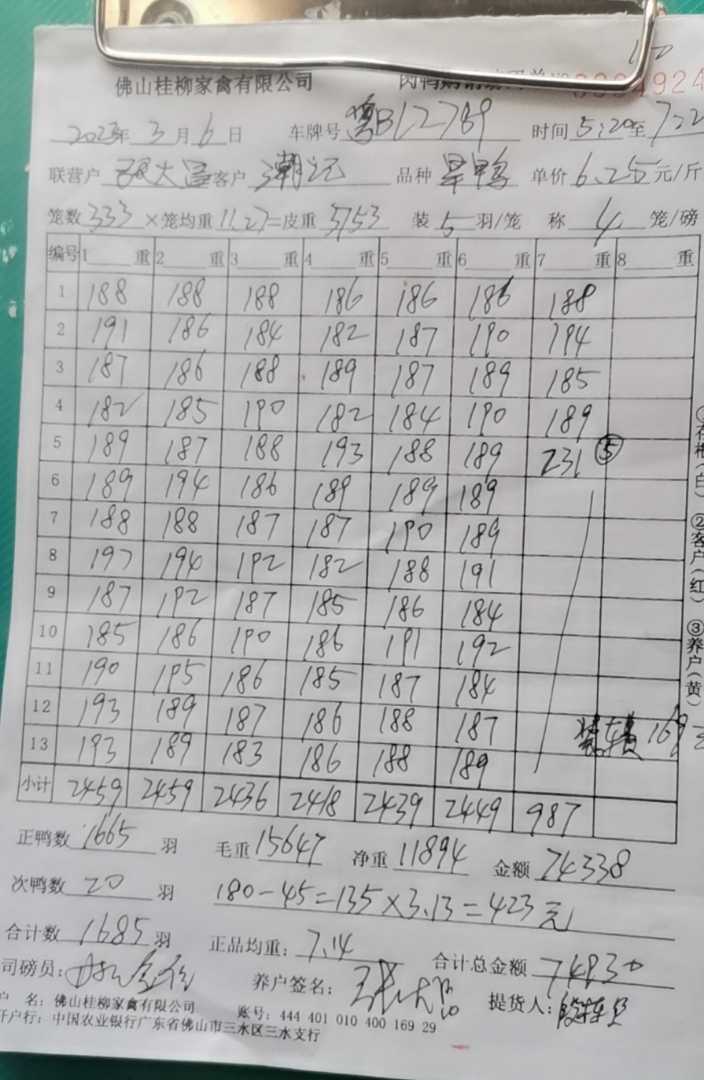 佛山桂柳家禽有限公司
2023年3月6日 车牌号 粤BL2789 时间5:20至7:22
联营户 客户 潮记 品种 旱鸭 单价6.25元/斤
笼数333×笼均重11.27=皮重3753 装5羽/笼 称4笼/磅
编号 1 重 2 重 3 重 4 重 5 重 6 重 7 重 8 重
1 188 188 188 186 186 186 188
2 191 186 184 182 187 190 194
3 187 186 188 189 187 189 185
4 182 185 190 182 184 190 189
5 189 187 188 193 188 189 231 ⑤
6 189 194 186 189 189 189
7 188 188 187 187 190 189
8 197 194 192 182 188 191
9 187 192 187 185 186 184
10 185 186 190 186 191 192
11 190 195 186 185 187 184
12 193 189 187 186 188 187
13 193 189 183 186 188 189
小计 2459 2459 2436 2418 2439 2449 987
正鸭数1665羽 毛重15647 净重11894 金额74338
次鸭数20羽 180-45=135×3.13=423元
合计数1685羽 正品均重:7.14 合计总金额74930
司磅员: 养户签名: 提货人:
户 名:佛山桂柳家禽有限公司 账号:444 401 010 400 169 29
开户行:中国农业银行广东省佛山市三水区三水支行
②客户(红)
③养户(黄)